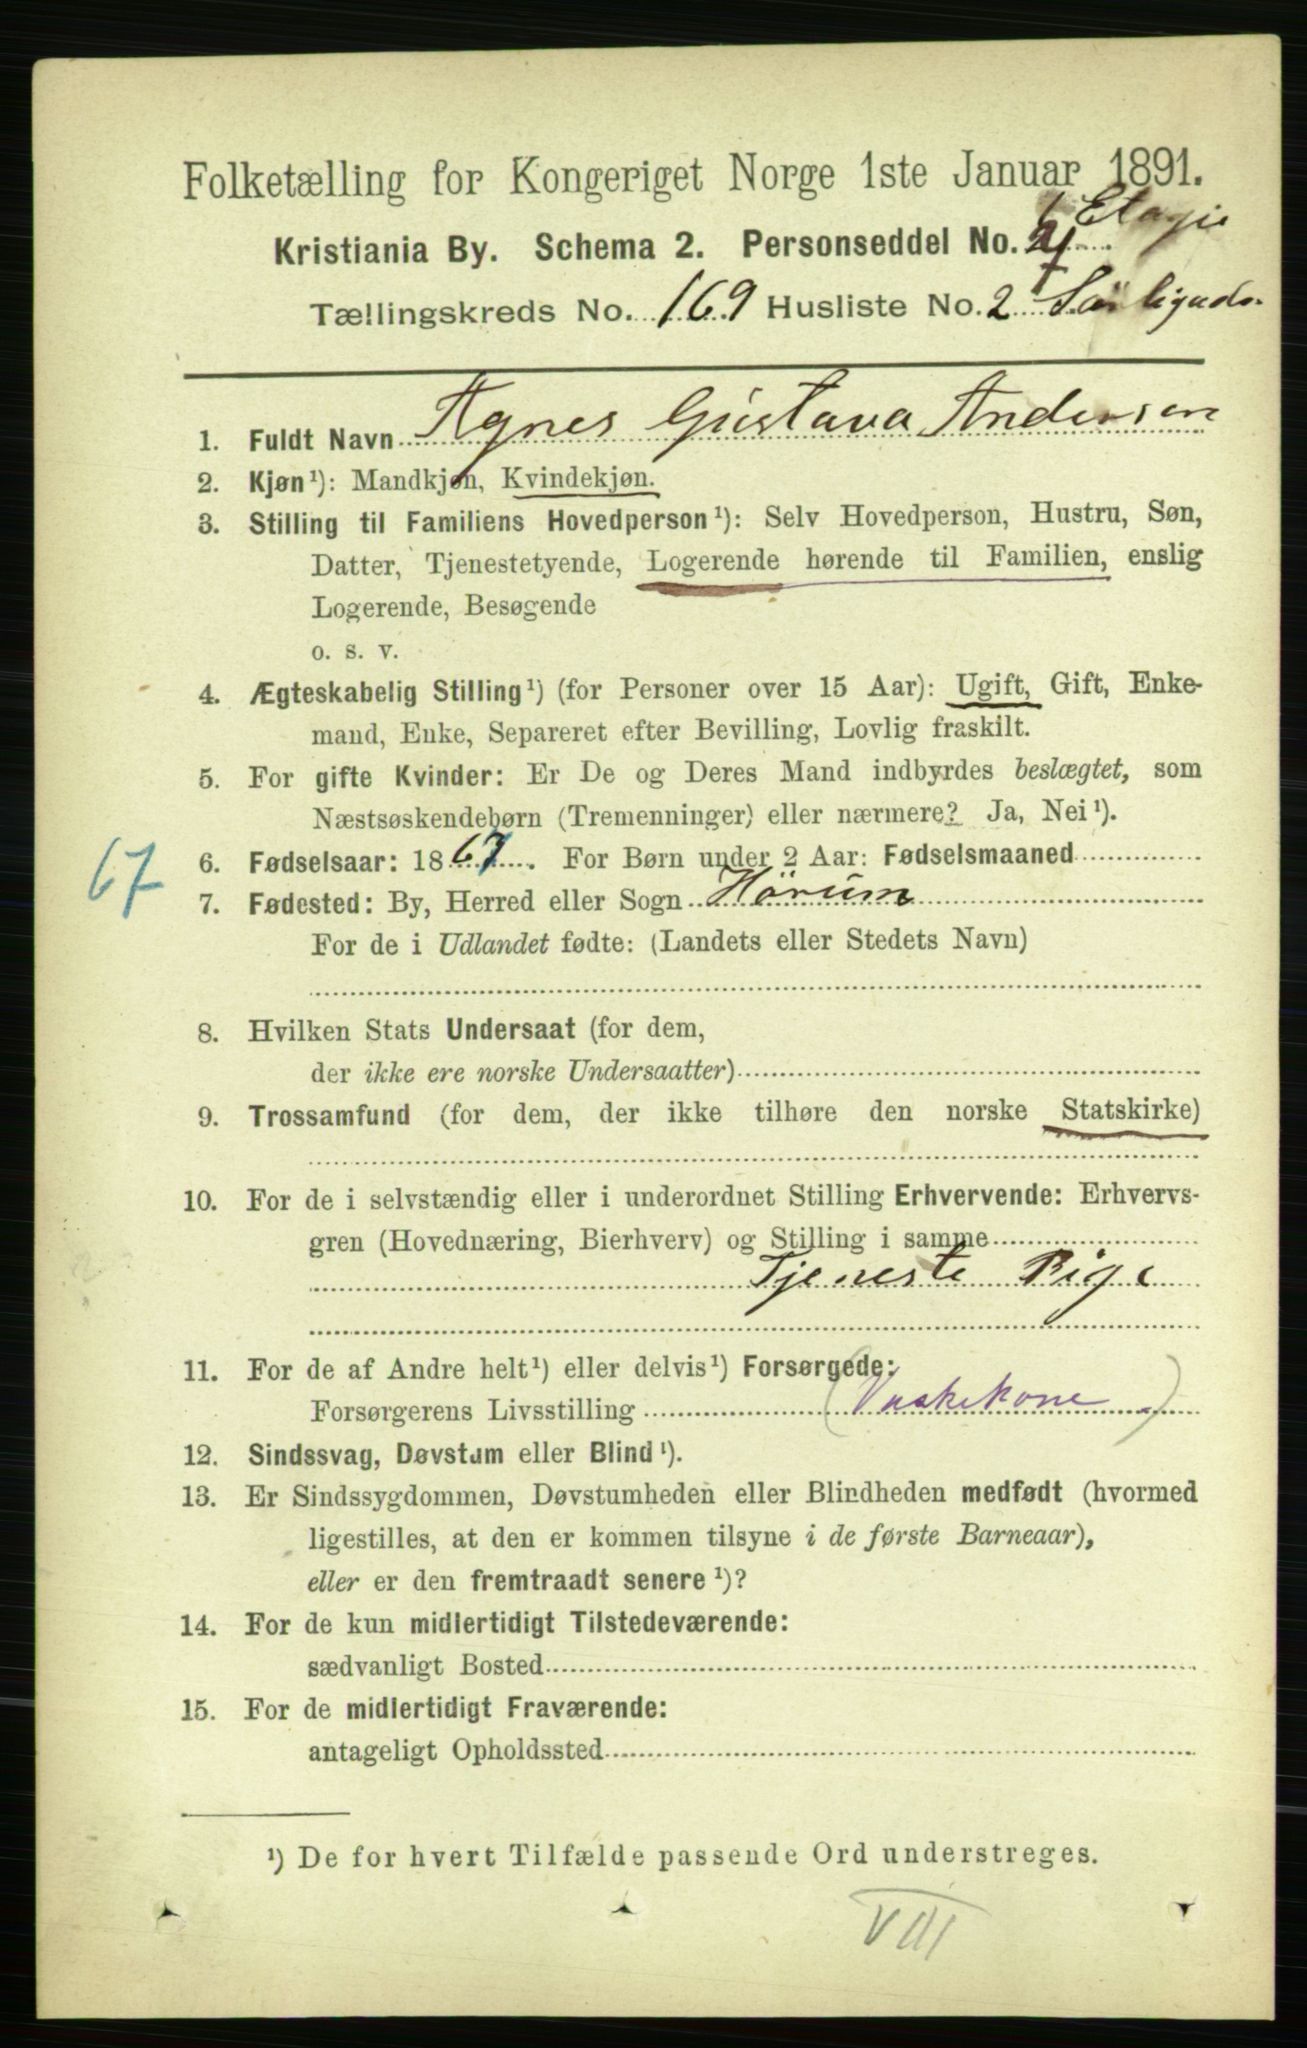 Folketælling for Kongeriget Norge 1ste Januar 1891.
Etagie
Kristiania By. Schema 2. Personseddel No.
Tællingskreds No. 169 Husliste No. 2
1. Fuldt Navn Agnes Gustava Andersen
2. Kjøn¹): Mandkjøn, Kvindekjøn.
3. Stilling til Familiens Hovedperson¹): Selv Hovedperson, Hustru, Søn,
Datter, Tjenestetyende, Logerende hørende til Familien, enslig
Logerende, Besøgende
o. s. v.
4. Ægteskabelig Stilling¹) (for Personer over 15 Aar): Ugift, Gift, Enke-
mand, Enke, Separeret efter Bevilling, Lovlig fraskilt.
5. For gifte Kvinder: Er De og Deres Mand indbyrdes beslægtet, som
Næstsøskendebørn (Tremenninger) eller nærmere? Ja, Nei¹).
67
6. Fødselsaar: 1867. For Børn under 2 Aar: Fødselsmaaned
7. Fødested: By, Herred eller Sogn Hörum
For de i Udlandet fødte: (Landets eller Stedets Navn)
8. Hvilken Stats Undersaat (for dem,
der ikke ere norske Undersaatter)
9. Trossamfund (for dem, der ikke tilhøre den norske Statskirke)
10. For de i selvstændig eller i underordnet Stilling Erhvervende: Erhvervs-
gren (Hovednæring, Bierhverv) og Stilling i samme
Tjeneste Pige
11. For de af Andre helt¹) eller delvis¹) Forsørgede:
Forsørgerens Livsstilling (Vaskekone)
12. Sindssvag, Døvstum eller Blind¹).
13. Er Sindssygdommen, Døvstumheden eller Blindheden medfødt (hvormed
ligestilles, at den er kommen tilsyne i de første Barneaar),
eller er den fremtraadt senere¹)?
14. For de kun midlertidigt Tilstedeværende:
sædvanligt Bosted
15. For de midlertidigt Fraværende:
antageligt Opholdssted
¹) De for hvert Tilfælde passende Ord understreges.
VIII